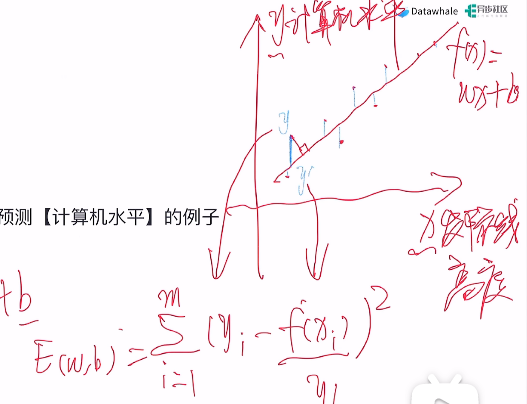 y 计算机水平
Datawhale 异步社区
f(x)=
wx+b
y
y'
预测【计算机水平】的例子
x 发际线
高度
+b
E(w,b) = \sum_{i=1}^{m} (y_i - f(x_i))^2
y_i